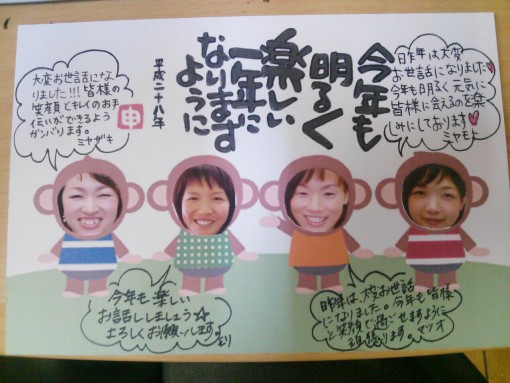 今年も
明るく
楽しい
一年に
なります
ように
平成二十八年
申
昨年は大変
お世話になりました
今年も明るく元気に
皆様に会えるのを楽
しみにしております
ミヤモト
大変お世話にな
りました!!!皆様の
笑顔とキレイのお手
伝いができるよう
ガンバります。
ミヤザキ
今年も楽しい
お話ししましょう☆
よろしくお願いします。
昨年は、大変お世話
になりました。今年も皆様
と笑顔で過ごせますように
頑張ります。マツオ